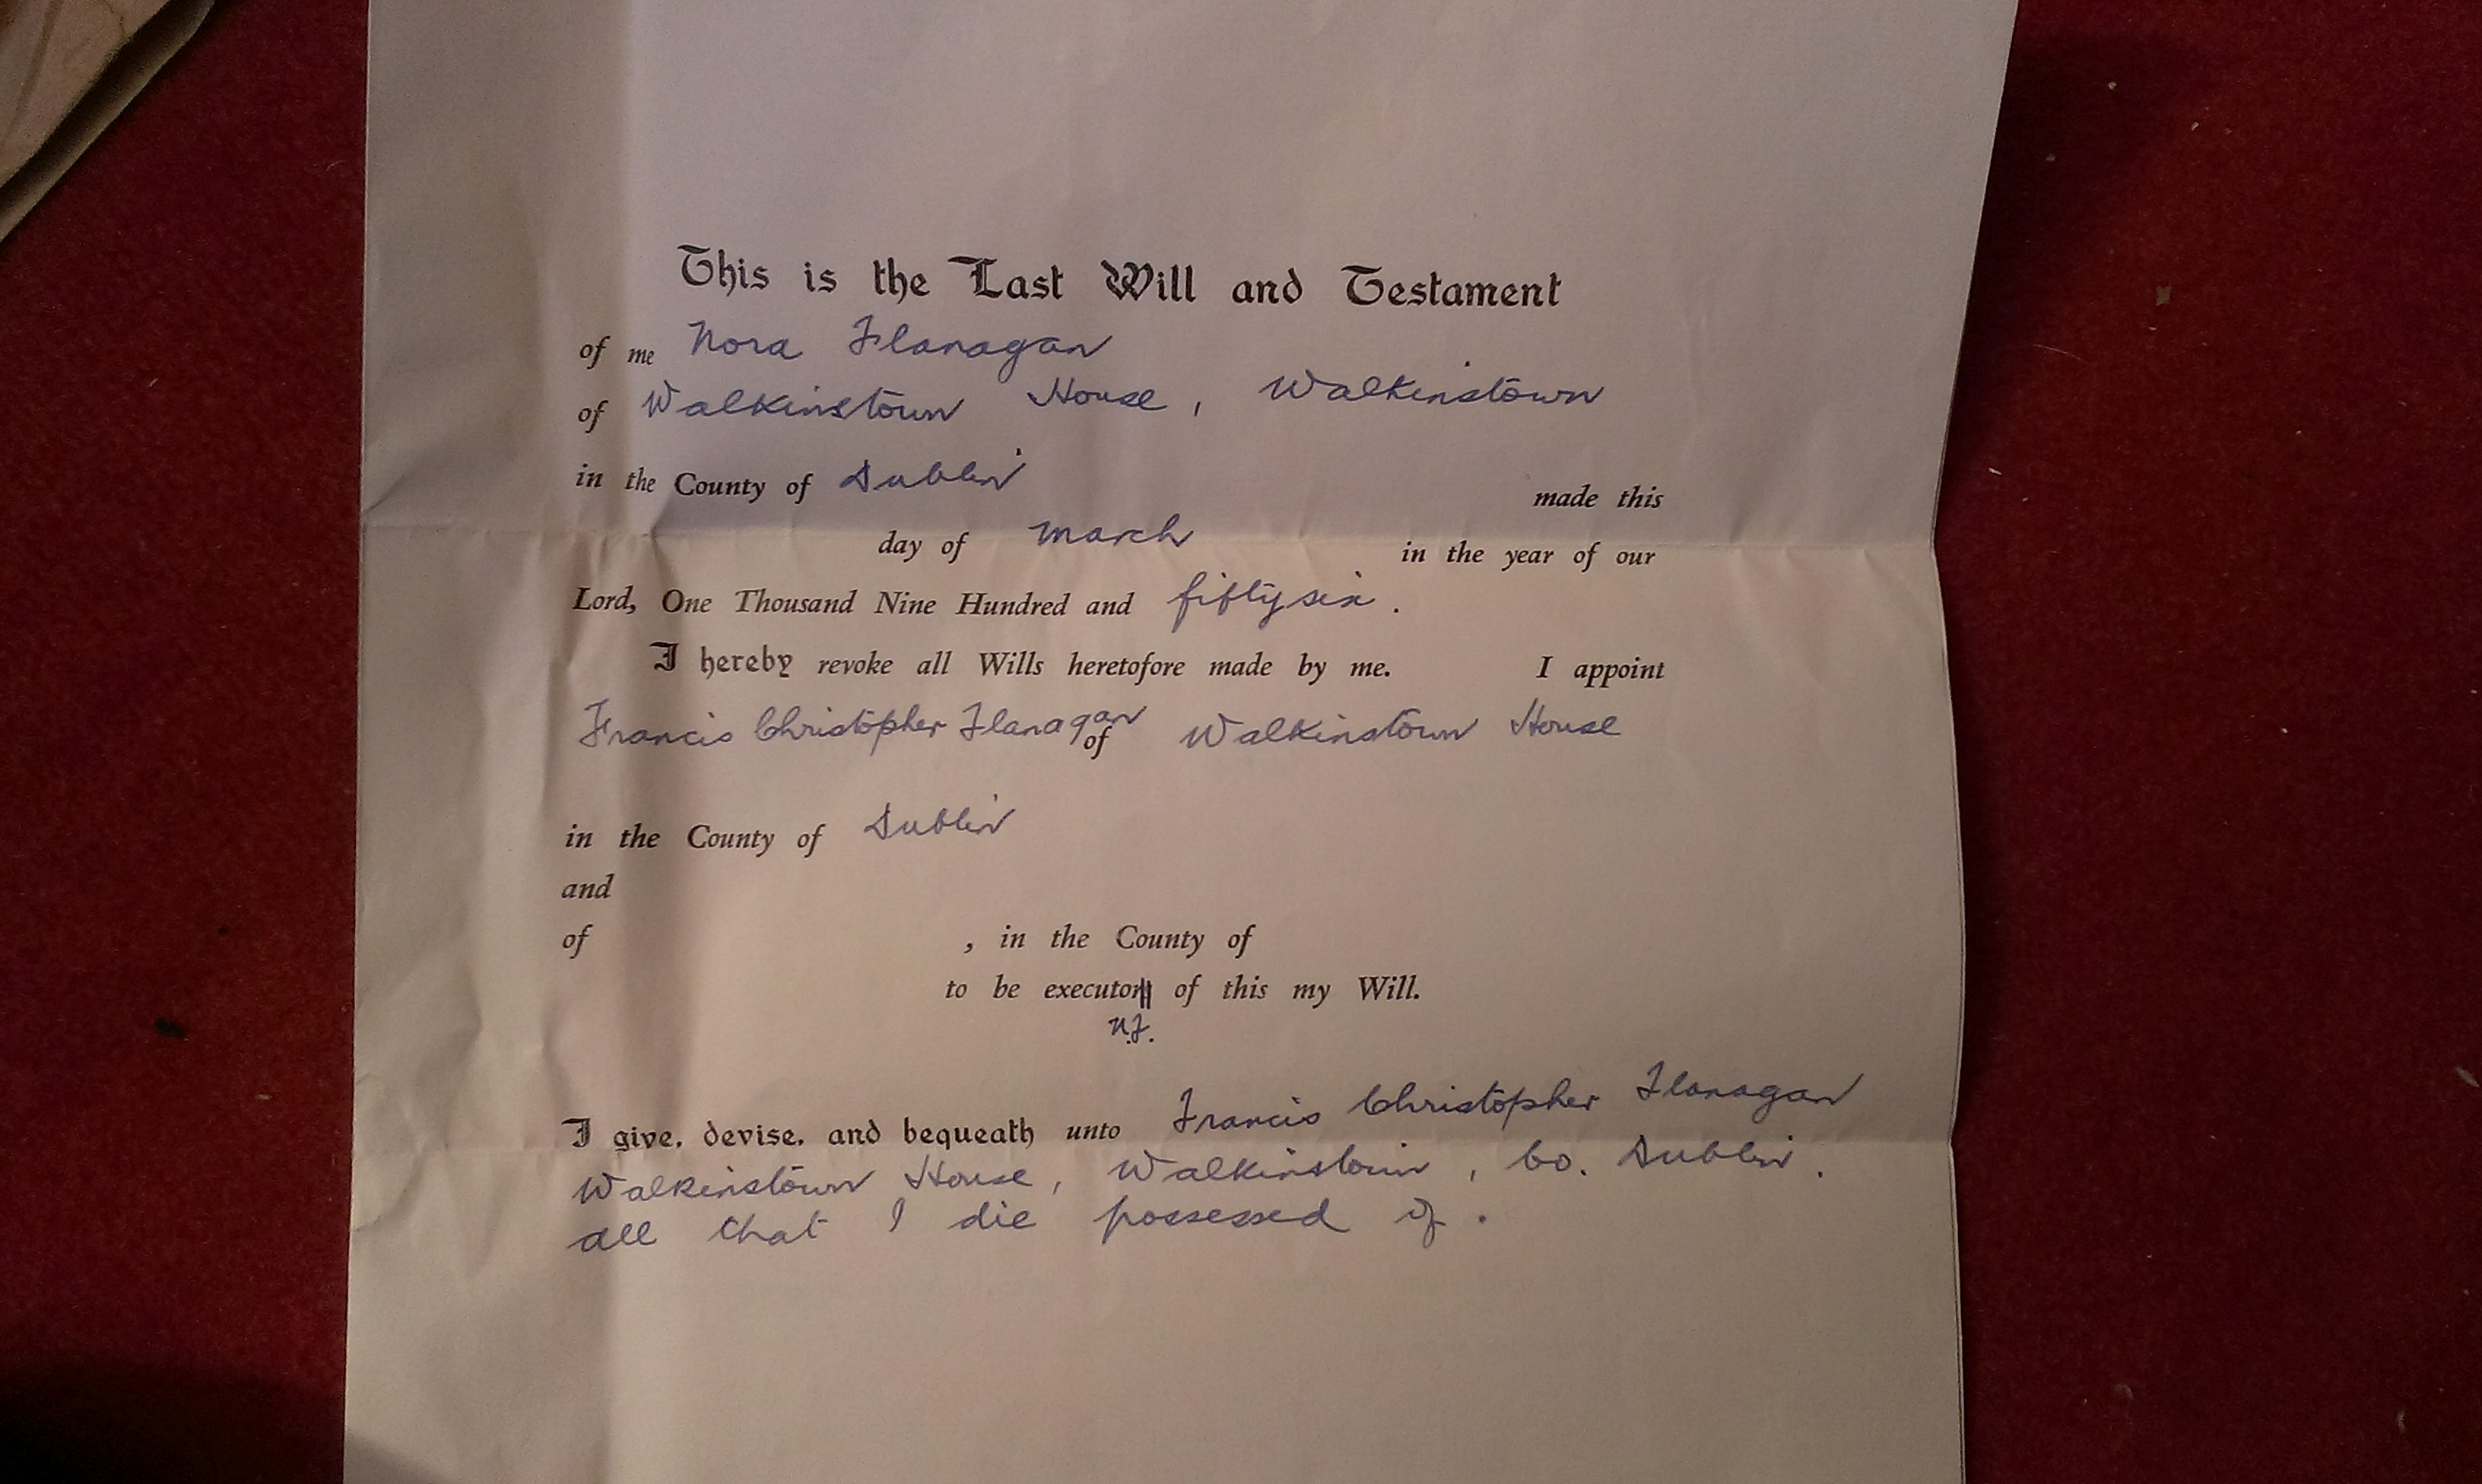 This is the Last Will and Testament
of me Nora Flanagan
of Walkinstown House, Walkinstown
in the County of Dublin made this
day of March in the year of our
Lord, One Thousand Nine Hundred and fifty six.
I hereby revoke all Wills heretofore made by me. I appoint
Francis Christopher Flanagan of Walkinstown House
in the County of Dublin
and
of , in the County of
to be executor of this my Will.
N.F.
I give, devise, and bequeath unto Francis Christopher Flanagan
Walkinstown House, Walkinstown, Co. Dublin.
all that I die possessed of.